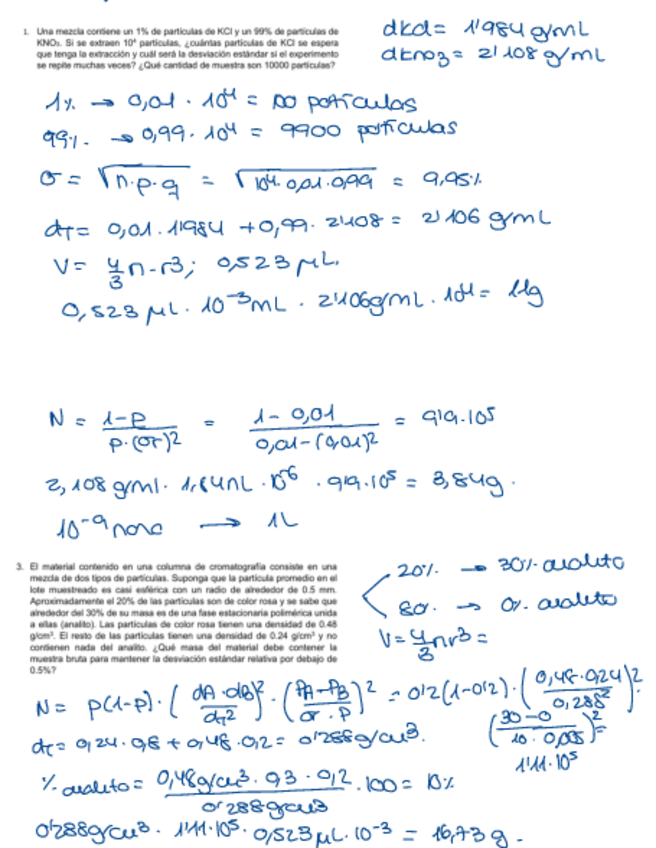 1. Una mezcla contiene un 1% de partículas de KCl y un 99% de partículas de
KNO₃. Si se extraen 10⁴ partículas, ¿cuántas partículas de KCl se espera
que tenga la extracción y cuál será la desviación estándar si el experimento
se repite muchas veces? ¿Qué cantidad de muestra son 10000 partículas?
dKCl = 1'984 g/mL
dKNO3 = 2'108 g/mL
1% → 0,01 · 10⁴ = 100 partículas
99% → 0,99 · 10⁴ = 9900 partículas
σ = √n·p·q = √10⁴·0,01·0,99 = 9,95%
dT = 0,01 · 1'1984 + 0,99 · 2'108 = 2'106 g/mL
V = 4/3 π·r3; 0,523 μL.
0,523 μL · 10⁻³mL · 2'106g/mL · 10⁴ = 11g
N = 1-p / p·(σr)2 = 1-0,01 / 0,01-(0,01)2 = 9'9·10⁵
2,108 g/ml · 10⁻⁶ · 9'9·10⁵ = 3,84g.
10⁻⁹ → 1L
3. El material contenido en una columna de cromatografía consiste en una
mezcla de dos tipos de partículas. Suponga que la partícula promedio en el
lote muestreado es casi esférica con un radio de alrededor de 0.5 mm.
Aproximadamente el 20% de las partículas son de color rosa y se sabe que
alrededor del 30% de su masa es de una fase estacionaria polimérica unida
a ellas (analito). Las partículas de color rosa tienen una densidad de 0.48
g/cm³. El resto de las partículas tienen una densidad de 0.24 g/cm³ y no
contienen nada del analito. ¿Qué masa del material debe contener la
muestra bruta para mantener la desviación estándar relativa por debajo de
0.5%?
20% → 30% analito
80% → 0% analito
V = 4/3 πr3 =
N = p(1-p) · (dA·dB / dT2)2 · (PA-PB / σr·P)2 = 0'2(1-0'2) · (0,48·0,24 / 0,288²)2 ·
(30-0 / 10·0,005)2 =
1'11·10⁵
dT = 0,24 · 0,8 + 0,48 · 0,2 = 0'288g/cm3.
% analito = 0,48g/cm3 · 0,3 · 0,2 / 0'288g/cm3 · 100 = 10%
0'288g/cm3 · 1'11·10⁵ · 0,523 μL · 10⁻³ = 16,73 g.